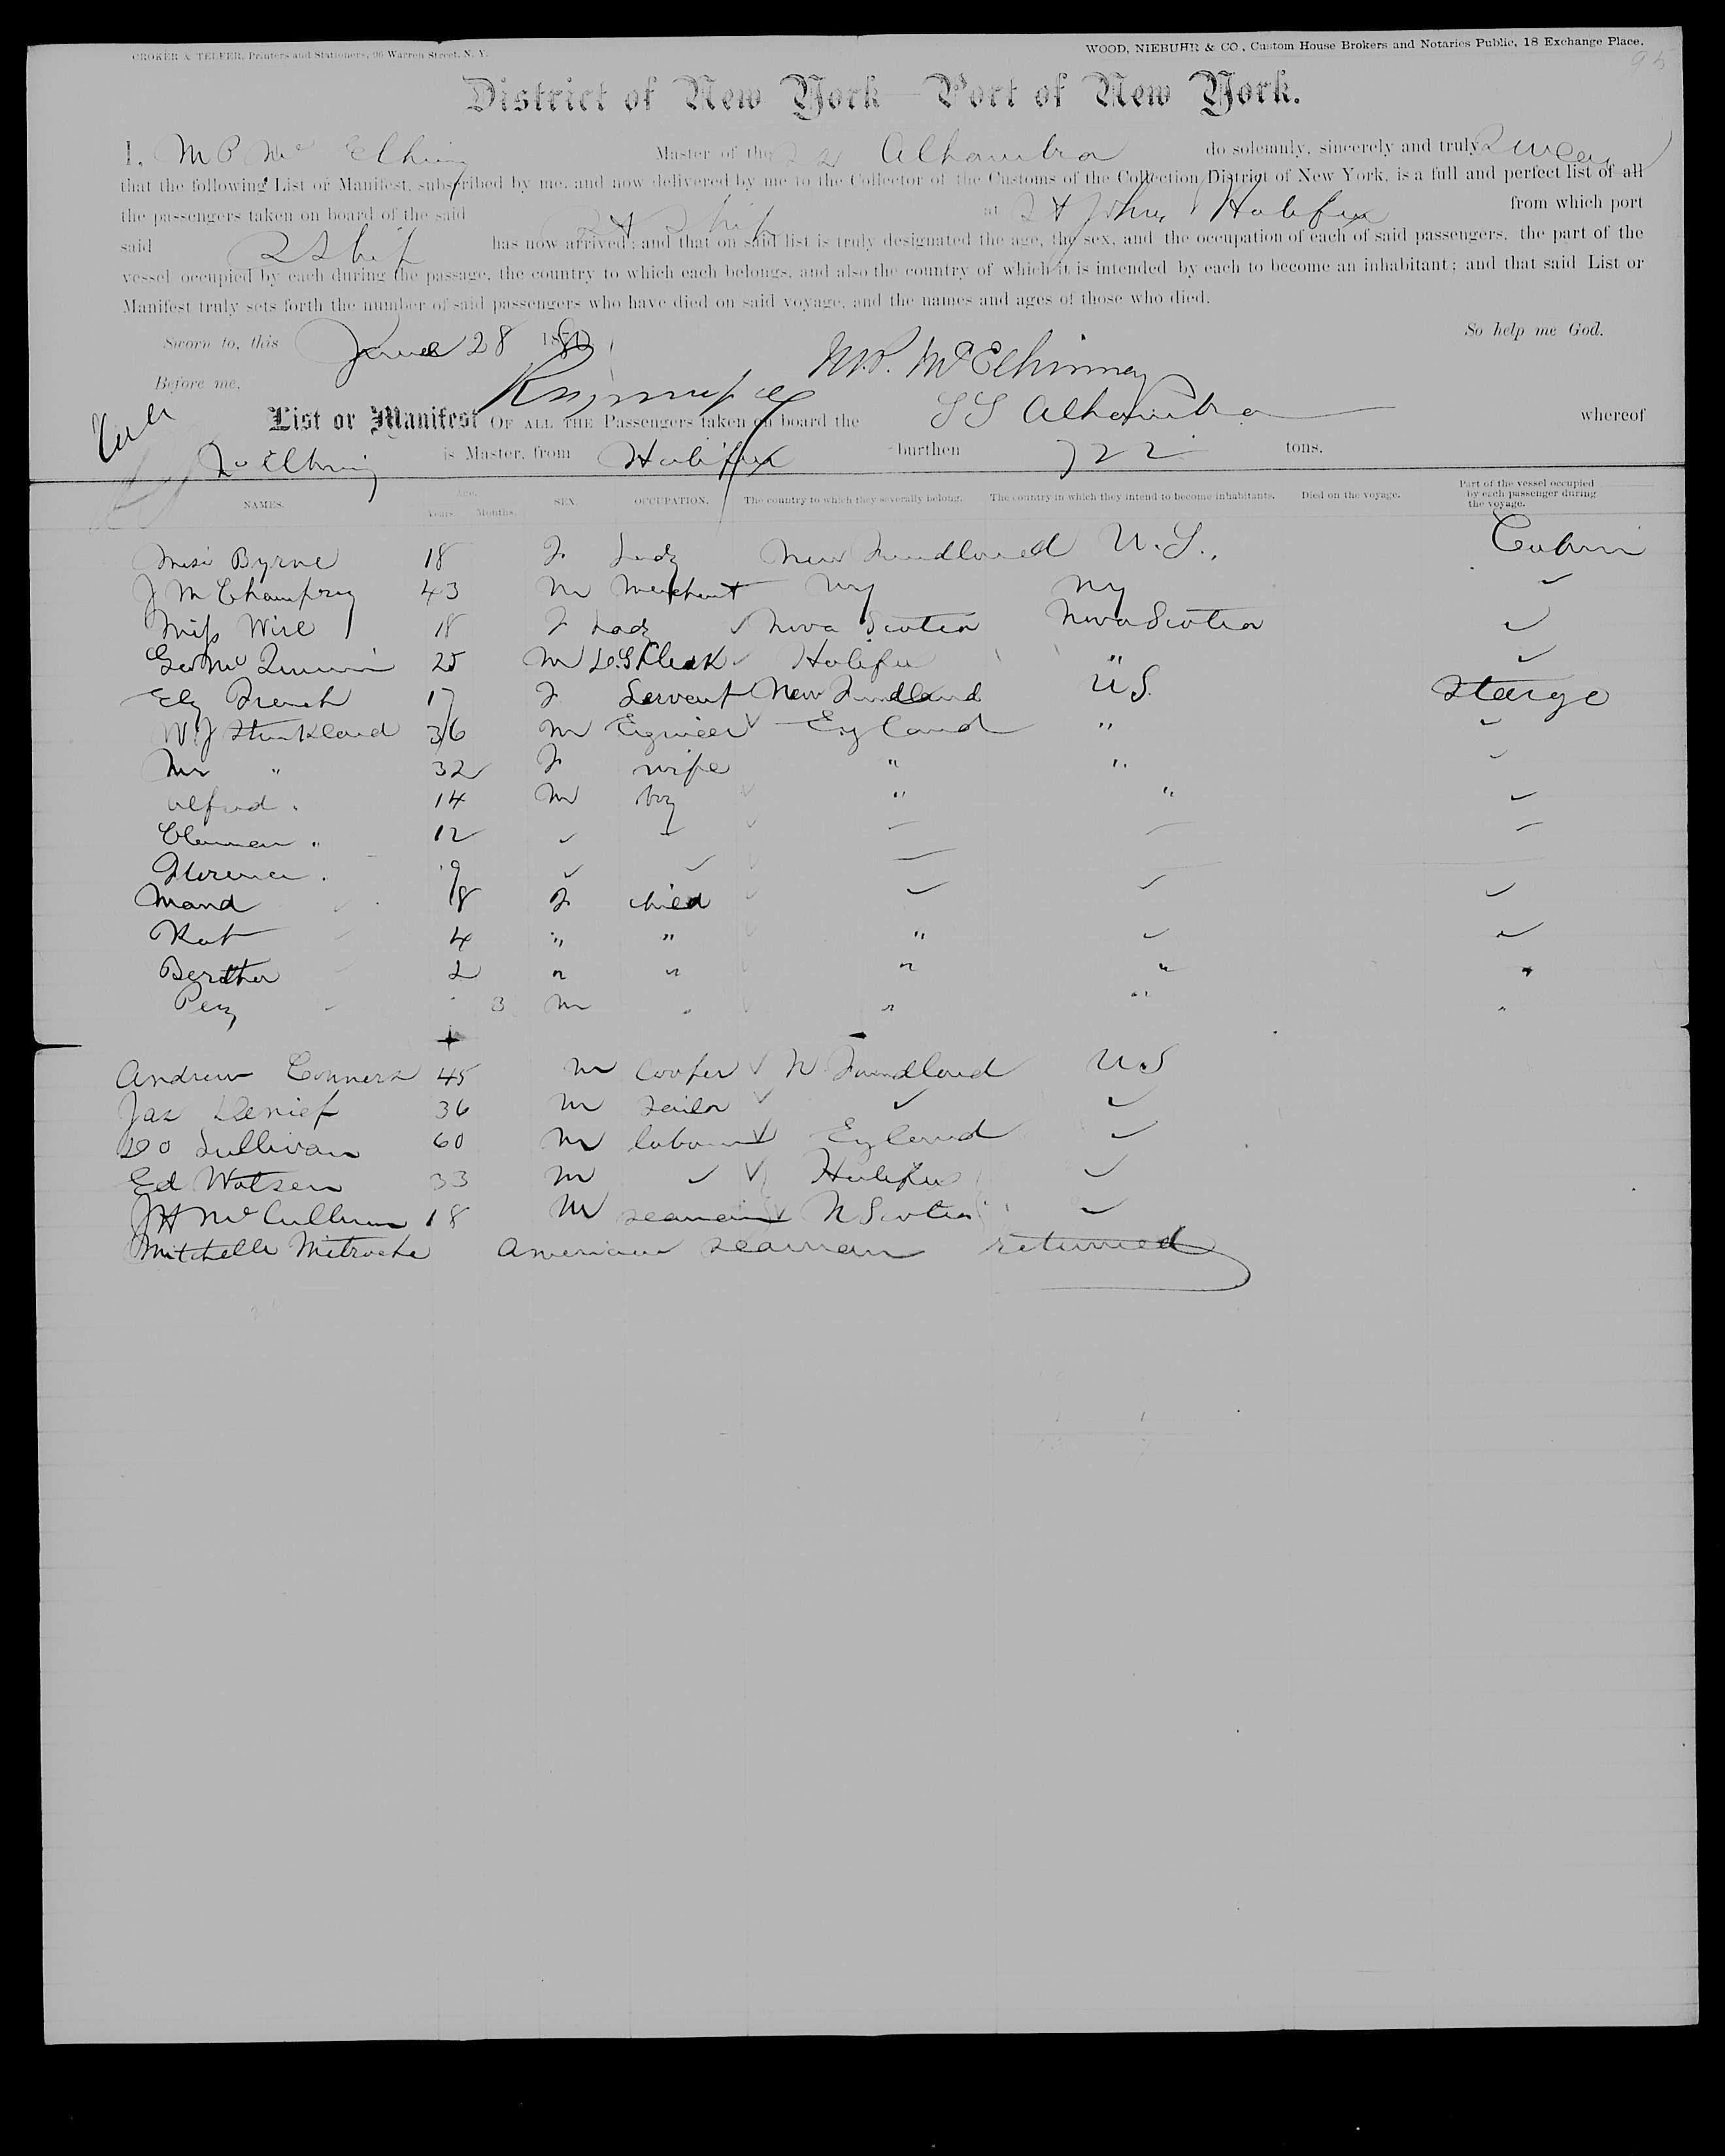 CROKER & TELFER, Printers and Stationers, 96 Warren Street, N. Y.
WOOD, NIEBUHR & CO., Custom House Brokers and Notaries Public, 18 Exchange Place.
95
District of New York—Port of New York.
I, M P Mc Elhiny Master of the SS Alhambra do solemnly, sincerely and truly Swear
that the following List or Manifest, subscribed by me, and now delivered by me to the Collector of the Customs of the Collection District of New York, is a full and perfect list of all
the passengers taken on board of the said St Ship at St Johns Halifax from which port
said S Ship has now arrived; and that on said list is truly designated the age, the sex, and the occupation of each of said passengers, the part of the
vessel occupied by each during the passage, the country to which each belongs, and also the country of which it is intended by each to become an inhabitant; and that said List or
Manifest truly sets forth the number of said passengers who have died on said voyage, and the names and ages of those who died.
Sworn to, this June 28 1880 So help me God.
Before me, M.P. McElhinney
List or Manifest OF ALL THE Passengers taken on board the SS Alhambra whereof
is Master, from Halifax burthen 722 tons.
NAMES. Age. Years. Months. SEX. OCCUPATION. The country to which they severally belong. The country in which they intend to become inhabitants. Died on the voyage. Part of the vessel occupied by each passenger during the voyage.
Miss Byrne 18 F Lady New Fundland U.S., Cabin
J M 43 M Merchant NY NY ✓
Miss Wire 18 F Lady ✓ Nova Scotia Nova Scotia ✓
Geo Mc 25 M Clerk ✓ Halifax " ✓
Elz French 17 F Servent New Fundland U S. Sterge
W.J Strickland 36 M Engineer ✓ England " ✓
Mrs " 32 F wife " " ✓
Alfred " 14 M boy ✓ " " ✓
" 12 ✓ ✓ ✓ — — —
Florence " 9 ✓ ✓ ✓ —
Maud 8 F child ✓ ✓ ✓ ✓
Kat 4 " " ✓ " ✓ ✓
Berther 2 " " ✓ " " "
Percy 3 M " ✓ " " "
Andrew Conners 45 M Cooper ✓ N Fundland U.S
Jas Denief 36 M Sailor ✓ ✓ ✓
D O Sullivan 60 M labourer ✓ England ✓
Ed Watsen 33 M ✓ ✓ Halifax ✓
J H McCullum 18 M seaman ✓ N Scotia ✓
Mitchelle Mitroche American seaman returned